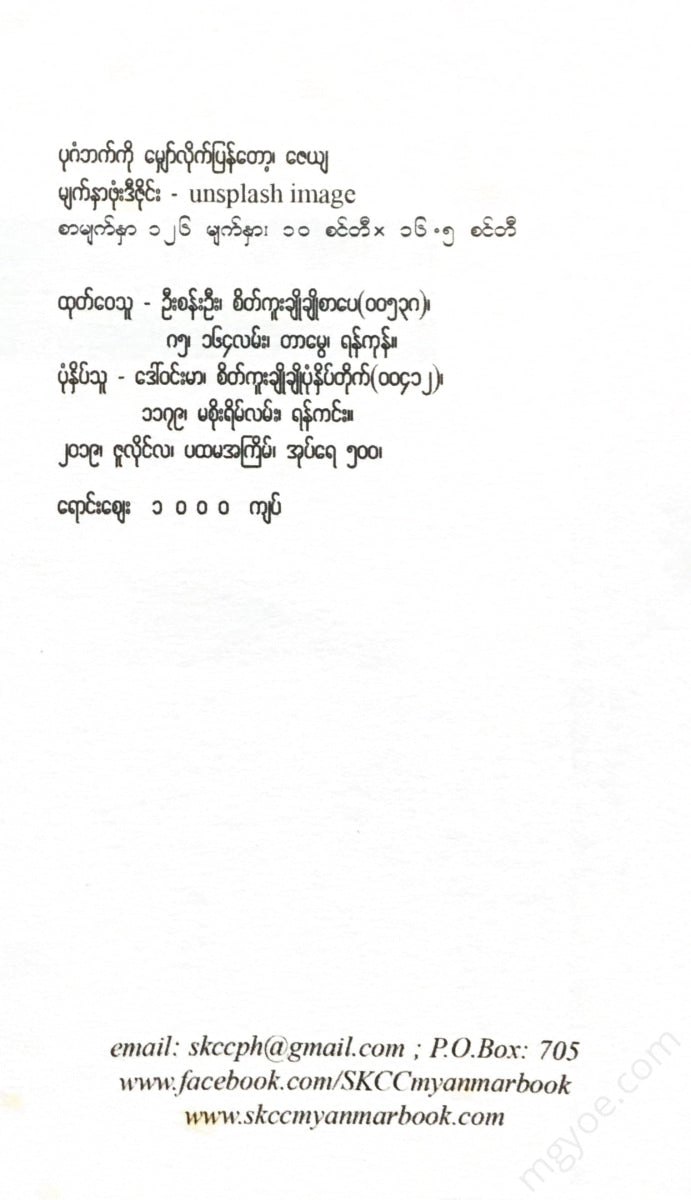 ပုဂံဘက်ကို မျှော်လိုက်ပြန်တော့၊ ဇေယျ
မျက်နှာဖုံးဒီဇိုင်း - unsplash image
စာမျက်နှာ ၁၂၆ မျက်နှာ၊ ၁၀ စင်တီ× ၁၆.၅ စင်တီ
ထုတ်ဝေသူ - ဦးစန်းဦး၊ စိတ်ကူးချိုချိုစာပေ(၀၀၅၃၈)၊
၈၅၊ ၁၆၄လမ်း၊ တာမွေ၊ ရန်ကုန်။
ပုံနှိပ်သူ - ဒေါ်ဝင်းမာ၊ စိတ်ကူးချိုချိုပုံနှိပ်တိုက်(၀၀၄၁၂)၊
၁၁၇၉၊ မစိုးရိမ်လမ်း၊ ရန်ကင်း။
၂၀၁၉၊ ဇူလိုင်လ၊ ပထမအကြိမ်၊ အုပ်ရေ ၅၀၀၊
ရောင်းဈေး ၁ ၀ ၀ ၀ ကျပ်
email: skccph@gmail.com ; P.O.Box: 705
www.facebook.com/SKCCmyanmarbook
www.skccmyanmarbook.com
mgyoe.com